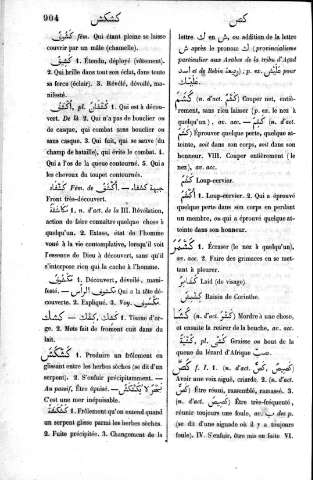 904
كشكش
كص
كَشُوفٌ fém. Qui étant pleine se laisse
couvrir par un mâle (chamelle).
كَشِيفٌ 1. Étendu, déployé (vêtement).
2. Qui brille dans tout son éclat, dans toute
sa force (éclair). 3. Révélé, dévoilé, ma-
nifesté.
أَكْشَفُ, pl. كُشْفَانٌ 1. Qui est à décou-
vert. De là 2. Qui n'a pas de bouclier ou
de casque, qui combat sans bouclier ou
sans casque. 3. Qui fuit, qui se sauve (du
champ de bataille), qui évite le combat. 4.
Qui a l'os de la queue contourné. 5. Qui a
les cheveux du toupet contournés.
كَشْفَاءُ Fém. de أَكْشَفُ — جبهة كشفاء
Front très-découvert.
مُكَاشَفَةٌ 1. n. d'act. de la III. Révélation,
action de faire connaître quelque chose à
quelqu'un. 2. Extase, état de l'homme
voué à la vie contemplative, lorsqu'il voit
l'essence de Dieu à découvert, sans qu'il
s'interpose rien qui la cache à l'homme.
مَكْشُوفٌ 1. Découvert, dévoilé, mani-
festé. — مكشوف الراس Qui a la tête dé-
couverte. 2. Expliqué. 3. Voy.
كشك — كشك 1. Tisane d'or-
ge. 2. Mets fait de froment cuit dans du
lait.
كَشْكَشَ 1. Produire un frôlement en
glissant entre les herbes sèches (se dit d'un
serpent). 2. S'enfuir précipitamment. —
Au passif, Être épuisé. —
C'est une mer inépuisable.
كَشْكَشَةٌ 1. Frôlement qu'on entend quand
un serpent glisse parmi les herbes sèches.
2. Fuite précipitée. 3. Changement de la
lettre ك en ش, ou addition de la lettre
ش après le pronom ك (provincialisme
particulier aux Arabes de la tribu d'Açad
اسد et de Rebia ربيعة); p. ex. عليش
pour عليك.
كَشَمَ (n. d'act. كَشْمٌ) Couper net, entiè-
rement, sans rien laisser (p. ex. le nez à
quelqu'un), av. acc. — كَشِمَ (n. d'act.
كَشَمٌ) Éprouver quelque perte, quelque at-
teinte, soit dans son corps, soit dans son
honneur. VIII. Couper entièrement (le
nez), av. acc.
كَشْمٌ Loup-cervier.
أَكْشَمُ 1. Loup-cervier. 2. Qui a éprouvé
quelque perte dans son corps en perdant
un membre, ou qui a éprouvé quelque at-
teinte dans son honneur.
كَشْمَرَ 1. Écraser (le nez à quelqu'un),
av. acc. 2. Faire des grimaces en se met-
tant à pleurer.
كُشَامِرٌ Laid (de visage).
كِشْمِشٌ Raisin de Corinthe.
كَشَا (n. d'act. كَشْوٌ) Mordre à une chose,
et ensuite la retirer de la bouche, av. acc.
كُشْيَةٌ, pl. كُشًى Graisse ou bout de la
queue du lézard d'Afrique ضب.
كَصَّ f. I. 1. (n. d'act. كَصِيصٌ, كَصٌّ)
Avoir une voix aiguë, criarde. 2. (n. d'act.
كَصٌّ) Être réuni, rassemblé, ramassé. 3.
(n. d'act. كَصِيصٌ) Être très-fréquenté,
réunir toujours une foule, av. ب des p.
(se dit d'une aiguade où il y a toujours
foule). IV. S'enfuir, être mis en fuite VI.